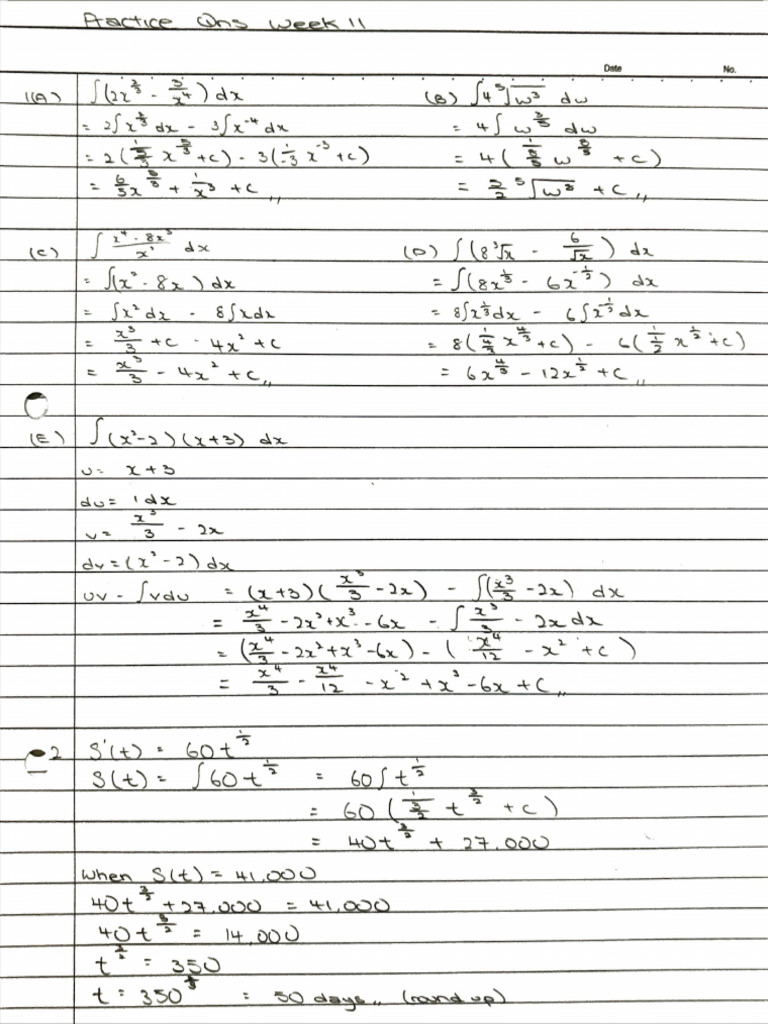 Practice Qns Week 11
Date No.
1(A) ∫(2x^(2/3) - 3/x^4) dx
= 2∫x^(2/3) dx - 3∫x^-4 dx
= 2(1/(5/3) x^(5/3) + c) - 3(1/-3 x^-3 + c)
= 6/5 x^(5/3) + 1/x^3 + c,,
(B) ∫4 ⁵√w³ dw
= 4∫ w^(3/5) dw
= 4( 1/(8/5) w^(8/5) + c)
= 5/2 ⁵√w⁸ + c,,
(C) ∫ (x^4 - 8x^3)/x^2 dx
= ∫(x² - 8x) dx
= ∫x² dx - 8∫x dx
= x³/3 + c - 4x² + c
= x³/3 - 4x² + c,,
(D) ∫(8 ³√x - 6/√x) dx
= ∫(8x^(1/3) - 6x^(-1/2)) dx
= 8∫x^(1/3) dx - 6∫x^(-1/2) dx
= 8(1/(4/3) x^(4/3) + c) - 6(1/(1/2) x^(1/2) + c)
= 6x^(4/3) - 12x^(1/2) + c,,
(E) ∫(x²-2)(x+3) dx
u = x+3
du = 1 dx
v = x³/3 - 2x
dv = (x² - 2) dx
uv - ∫vdu = (x+3)(x³/3 - 2x) - ∫(x³/3 - 2x) dx
= x⁴/3 - 2x² + x³ - 6x - ∫ x³/3 - 2x dx
= (x⁴/3 - 2x² + x³ - 6x) - ( x⁴/12 - x² + c )
= x⁴/3 - x⁴/12 - x² + x³ - 6x + c,,
2 S'(t) = 60t^(1/2)
S(t) = ∫60t^(1/2) = 60∫t^(1/2)
= 60 ( 1/(3/2) t^(3/2) + c)
= 40t^(3/2) + 27.000
When S(t) = 41.000
40t^(3/2) + 27.000 = 41.000
40t^(3/2) = 14.000
t^(3/2) = 350
t = 350^(2/3) = 50 days,, (round up)